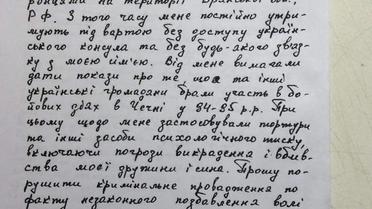 ронцями на території Брянської обл.,
РФ. З того часу мене постійно утри-
мують під вартою без доступу україн-
ського консула та без будь-якого звʼяз-
ку з моєю сімʼєю. Від мене вимагали
дати покази про те, що я та інші
українські громадяни брали участь в бо-
йових діях в Чечні у 94-95 р.р. При
цьому щодо мене застосовували тортури
та інші засоби психологічного тиску,
включаючи погрози викрадення і вбив-
ства моєї дружини і сина. Прошу по-
рушити кримінальне провадження по
факту незаконного позбавлення волі